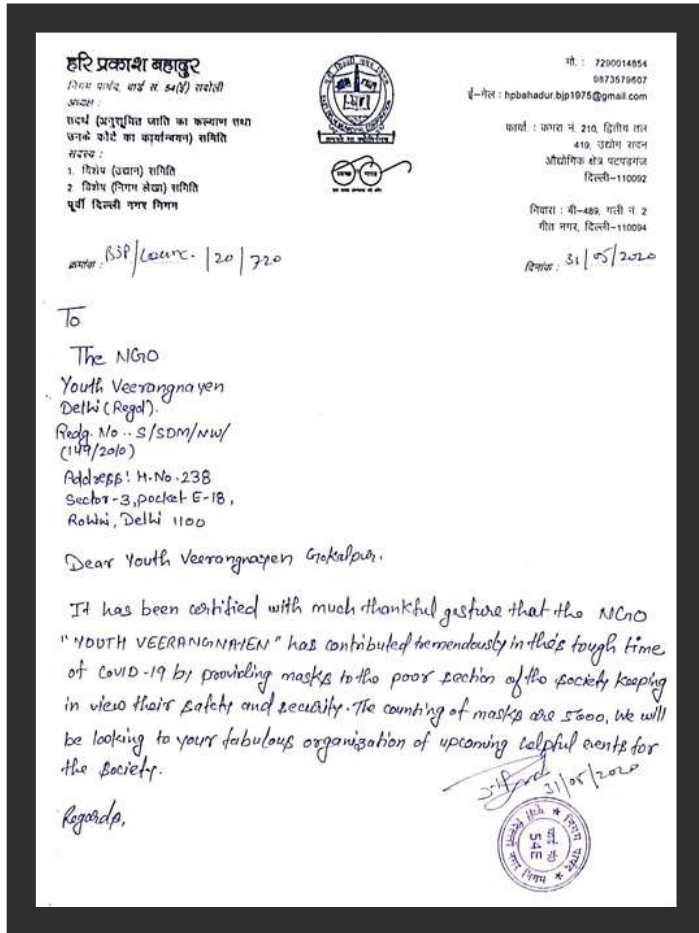 हरि प्रकाश बहादुर
निगम पार्षद, वार्ड सं. 54(ई) सबोली
अध्यक्ष :
तदर्थ (अनुसूचित जाति का कल्याण तथा
उनके कोटे का कार्यान्वयन) समिति
सदस्य :
1. विशेष (उद्यान) समिति
2. विशेष (निगम लेखा) समिति
पूर्वी दिल्ली नगर निगम
मो. : 7290014854
9873579607
ई-मेल : hpbahadur.bjp1975@gmail.com
कार्या. : कमरा नं. 210, द्वितीय तल
419, उद्योग सदन
औद्योगिक क्षेत्र पटपड़गंज
दिल्ली-110092
निवास : बी-489, गली नं. 2
गीत नगर, दिल्ली-110094
क्रमांक : BJP/Counc. /20/720
दिनांक : 31/05/2020
To
The NGO
Youth Veerangnayen
Delhi (Regd).
Redg. No .. S/SDM/NW/
(149/2010)
Address: H.No.238
Sector-3, pocket E-18,
Rohini, Delhi 1100
Dear Youth Veerangnayen Gokalpur.
It has been certified with much thankful gesture that the NGO
"YOUTH VEERANGNAYEN" has contributed tremendously in this tough time
of COVID-19 by providing masks to the poor section of the society keeping
in view their safety and security. The counting of masks are 5000, We will
be looking to your fabulous organization of upcoming helpful events for
the society.
31/05/2020
Regards,
निगम पार्षद
वार्ड नं०
54E
पूर्वी दिल्ली नगर निगम